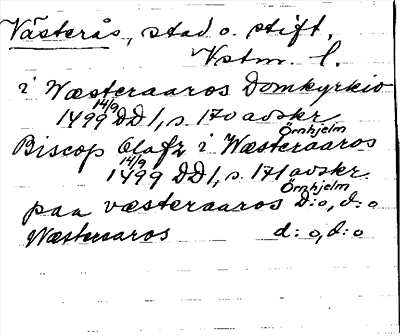 Västerås, stad o. stift,
Vstm. l.
i Wæsteraaros Domkyrkio
14/9 1499 DD1, s. 170 avskr. Örnhjelm
Biscop Olafz i Wæsteraaros
14/9 1499 DD1, s. 171 avskr. Örnhjelm
paa væsteraaros D:o, d:o
Wæsteraros d:o, d:o